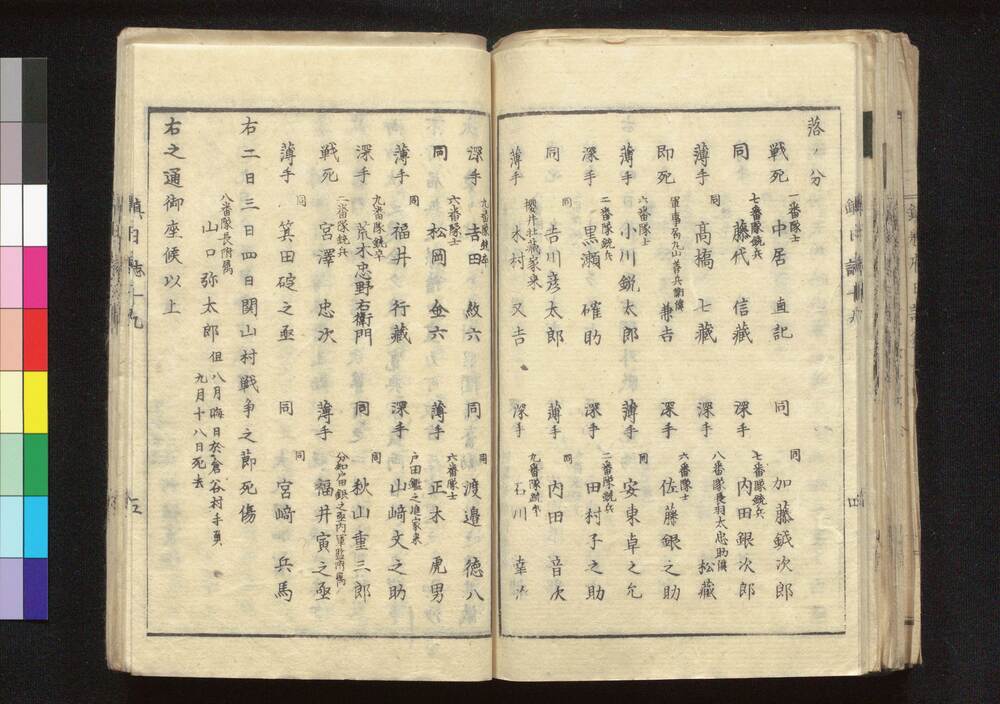 落ノ分
一番隊士
戦死 中居直記 同 同 加藤鉞次郎
七番隊銃兵
同 藤代信藏 深手 七番隊銃兵 内田銀次郎
薄手 同 髙橋七藏 深手 八番隊長羽太忠助僕 松藏
即死 軍事方丸山善兵衛僕 兼吉 深手 六番隊士 佐藤銀之助
薄手 六番隊士 小川鋭太郎 薄手 同 安東卓之允
深手 二番隊銃兵 黒瀬確助 深手 二番隊銃兵 田村子之助
同 同 吉川彦太郎 薄手 同 内田音次
薄手 櫻井社藏家来 木村又吉 深手 九番隊銃卒 石川幸次
深手 九番隊銃卒 吉田紋六 同 同 渡邉徳八
同 六番隊士 松岡金六 薄手 六番隊士 正木虎男
薄手 同 福井行藏 深手 戸田鑑之進家来 山﨑文之助
深手 九番隊銃卒 荒木忠野右衛門 同 同 秋山重三郎
戦死 二番隊銃兵 宮澤忠次 薄手 分知戸田銀之亟内軍監附属 福井寅之亟
薄手 同 箕田碇之亟 同 同 宮﨑兵馬
右二日三日四日関山村戦争之節死傷
八番隊長附属
山口弥太郎 但八月晦日於倉谷村手負
九月十八日死去
右之通御座候以上
鎮日誌十九
四
鎮日誌十九
五